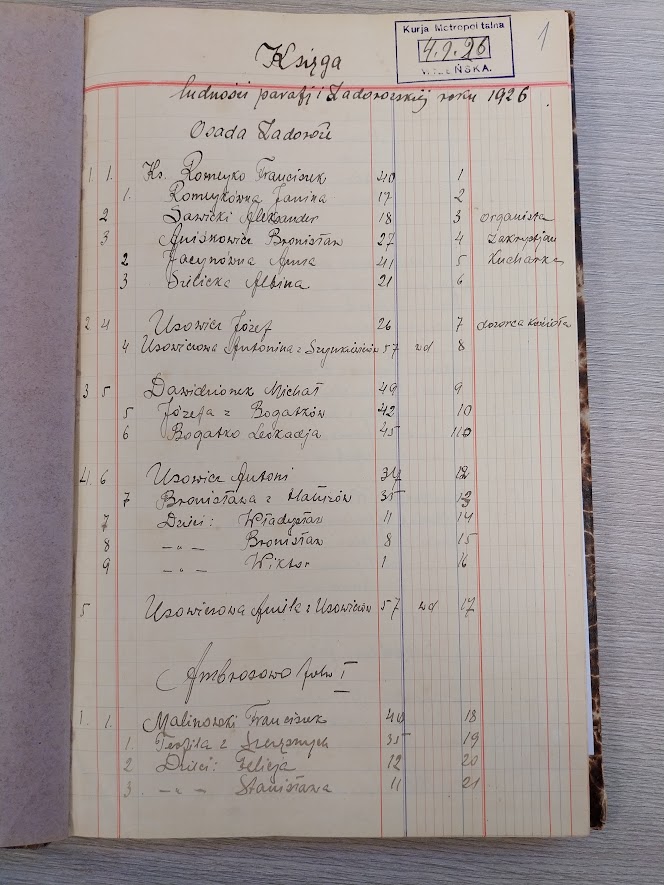 Kurja Metropolitalna
4.9.26
WILEŃSKA.
1
Księga
ludności parafji Zadoroskiej roku 1926
Osada Zadoroże
1. 1. Ks. Romeyko Franciszek 40 1
1. Romeykówna Janina 17 2
2 Sawicki Aleksander 18 3 organista
3 Aniśkowicz Bronisław 27 4 Zakrystjan
2 Jacynówna Anna 41 5 Kucharka
3 Albina 21 6
2 4 Usowicz Józef 26 7 dozorca Kościoła
4 Usowiczowa Antonina z 57 wd 8
3 5 Dawidzionek Michał 49 9
5 Józefa z Bogatków 42 10
6 Bogatko Leokadja 45 11
4. 6 Usowicz Antoni 12
7 Bronisława z 35 13
7 Dzieci: Władysław 11 14
8 -„- Bronisław 8 15
9 -„- Wiktor 1 16
5 Usowiczowa z Usowiczów 57 wd 17
Ambrosowo folw I
1. 1. Malinowski Franciszek 40 18
1. Teofila z 35 19
2 Dzieci: Felicja 12 20
3 -„- Stanisława 11 21